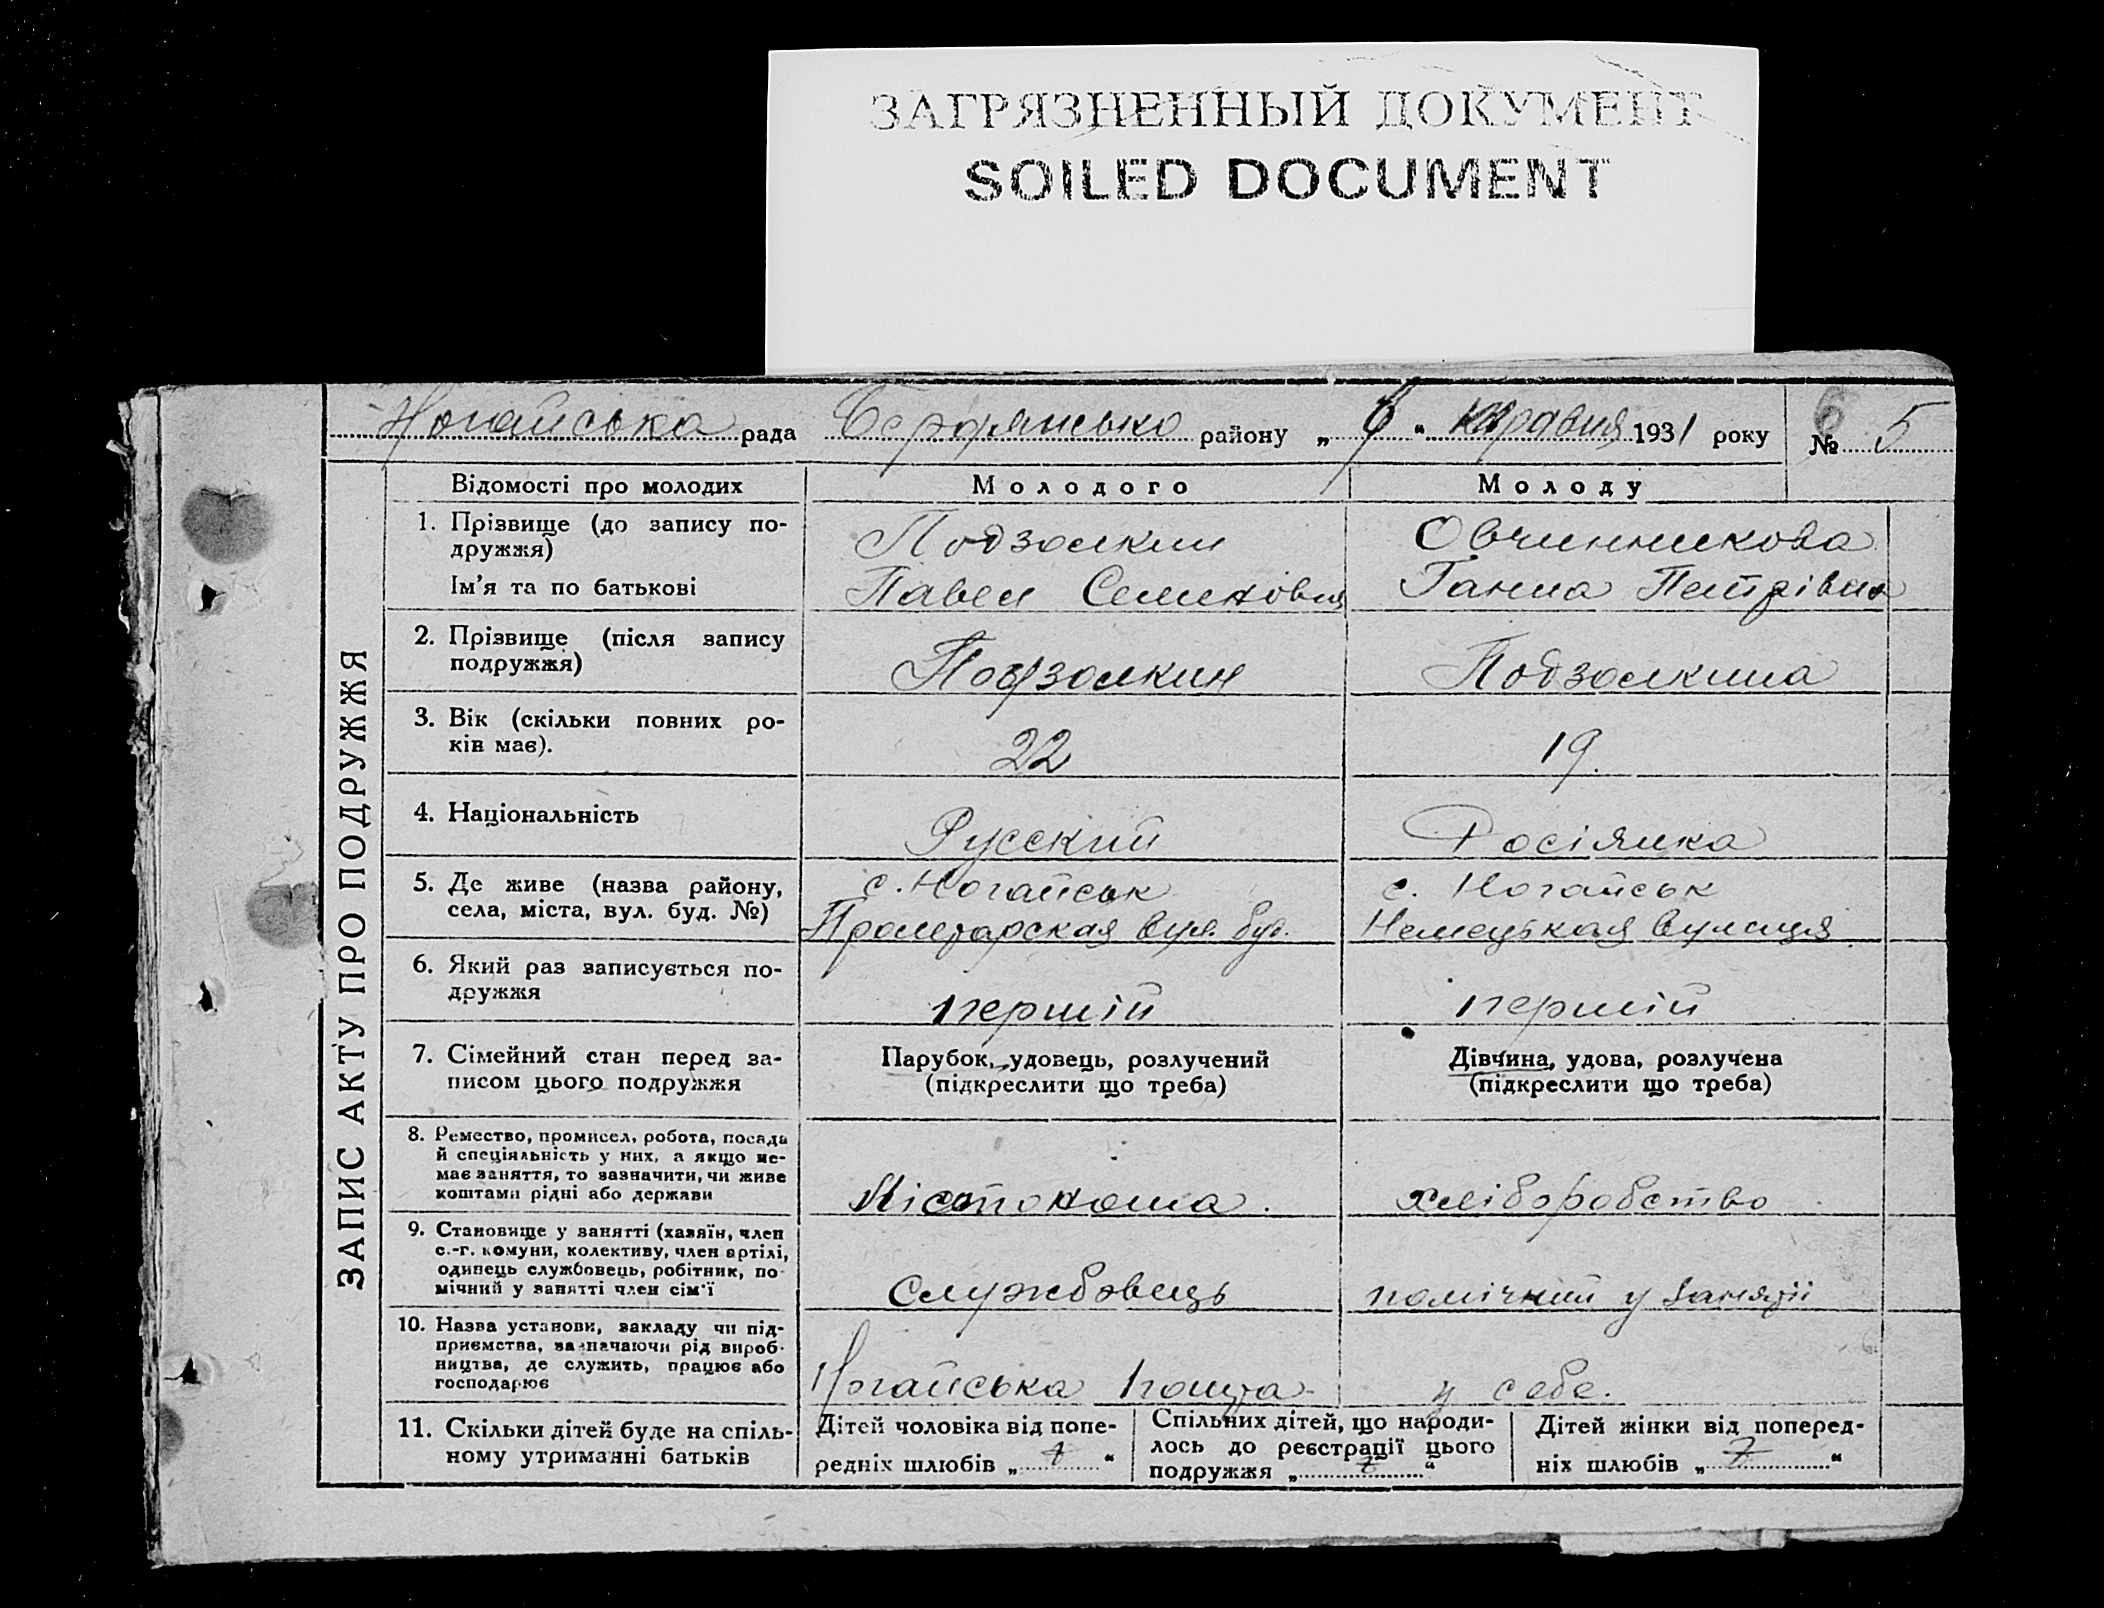 ЗАГРЯЗНЕННЫЙ ДОКУМЕНТ
SOILED DOCUMENT
Ногайська рада Бердянсько району „ 6 “ травня 1931 року № 5
6
ЗАПИС АКТУ ПРО ПОДРУЖЖЯ
Відомості про молодих Молодого Молоду
1. Прізвище (до запису по-
дружжя)
Подзолкин Овчинникова
Ім'я та по батькові Павел Семенович Ганна Петрівна
2. Прізвище (після запису
подружжя)
Подзолкин Подзолкина
3. Вік (скільки повних ро-
ків має).
22 19.
4. Національність Русский Росіянка
5. Де живе (назва району,
села, міста, вул. буд. №)
с. Ногайськ с. Ногайськ
Пролетарская вул. буд. Немецькая вулиця
6. Який раз записується по-
дружжя
першій першій
7. Сімейний стан перед за-
писом цього подружжя
Парубок, удовець, розлучений
(підкреслити що треба)
Дівчина, удова, розлучена
(підкреслити що треба)
8. Ремество, промисел, робота, посада
й спеціяльність у них, а якщо не-
має заняття, то зазначити, чи живе
коштами рідні або держави
Містоноша. хліборобство
9. Становище у занятті (хазяїн, член
с.-г. комуни, колективу, член артілі,
одинець службовець, робітник, по-
мічний у занятті член сім'ї
службовець помічний у занятії
10. Назва установи, закладу чи під-
приємства, зазначаючи рід вироб-
ництва, де служить, працює або
господарює
Ногайська пошта у себе.
11. Скільки дітей буде на спіль-
ному утриманні батьків
Дітей чоловіка від попе-
редніх шлюбів „ “
Спільних дітей, що народи-
лось до реєстрації цього
подружжя „ “
Дітей жінки від поперед-
ніх шлюбів „ “